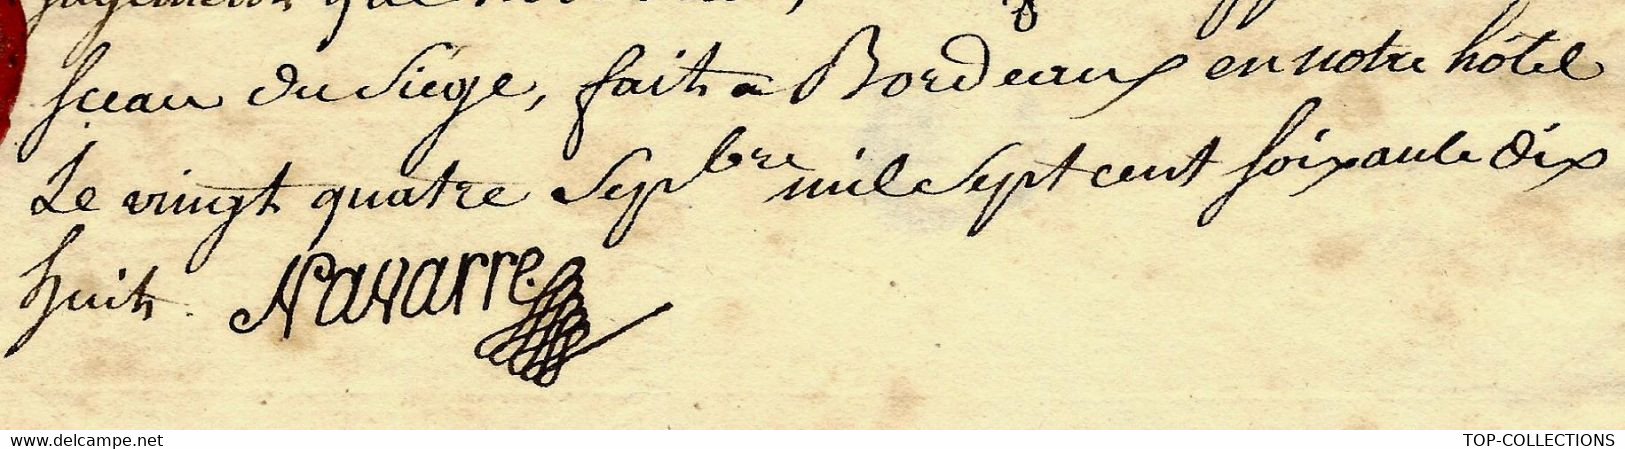 jugement que
Sceau du Siége, fait a Bordeaux en notre hôtel
Le vingt quatre Sepbre mil Sept cent soixante dix
huit. Navarre
www.delcampe.net
TOP-COLLECTIONS